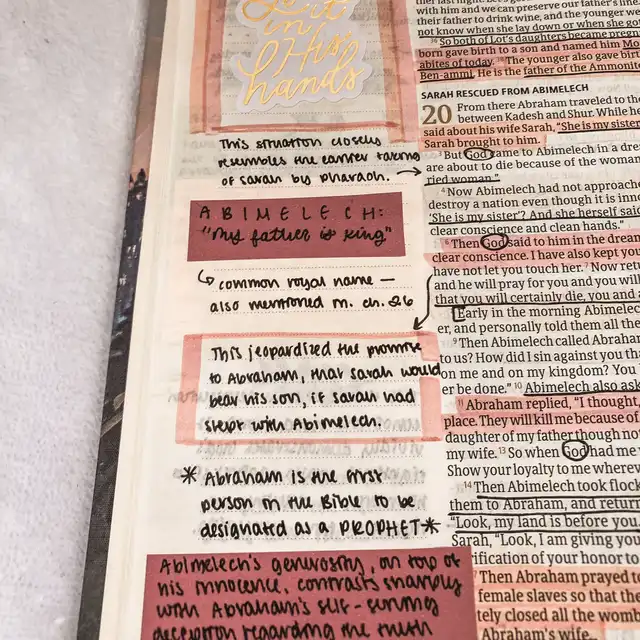 in
His
hands
This situation closely
resembles the earlier taking
of sarah by pharaoh.
ABIMELECH:
"my father is king"
common royal name —
also mentioned in ch. 26
This jeopardized the promise
to Abraham, that sarah would
bear his son, if sarah had
slept with Abimelech.
* Abraham is the first
person in the Bible to be
designated as a PROPHET *
Abimelech's generosity, on top of
his innocence, contrasts sharply
with Abraham's self-serving
deception regarding the truth
with him and we can preserve our father's
their father to drink wine, and the younger we
not know when she lay down or when she go
So both of Lot's daughters became
born gave birth to a son and named him Mo
abites of today. The younger also gave birt
Ben-ammi. He is the father of the Ammonite
SARAH RESCUED FROM ABIMELECH
20 From there Abraham traveled to the
between Kadesh and Shur. While he
said about his wife Sarah, "She is my sister
Sarah brought to him.
But God came to Abimelech in a dre
are about to die because of the woman
ried woman."
4 Now Abimelech had not approach
destroy a nation even though it is inn
'She is my sister'? And she herself said
clear conscience and clean hands."
6 Then God said to him in the dream
clear conscience. I have also kept you
have not let you touch her. 7 Now retu
and he will pray for you and you will
that you will certainly die, you and a
Early in the morning Abimelech
er, and personally told them all the
9 Then Abimelech called Abraham
to us? How did I sin against you th
on me and on my kingdom? You
er be done." 10 Abimelech also ask
11 Abraham replied, "I thought,
place. They will kill me because of
daughter of my father though no
my wife. 13 So when God had me
Show your loyalty to me wherev
14 Then Abimelech took flock
them to Abraham, and return
"Look, my land is before you
Sarah, "Look, I am giving you
rification of your honor to
Then Abraham prayed to
female slaves so that the
tely closed all the wom
Abraham's wife.